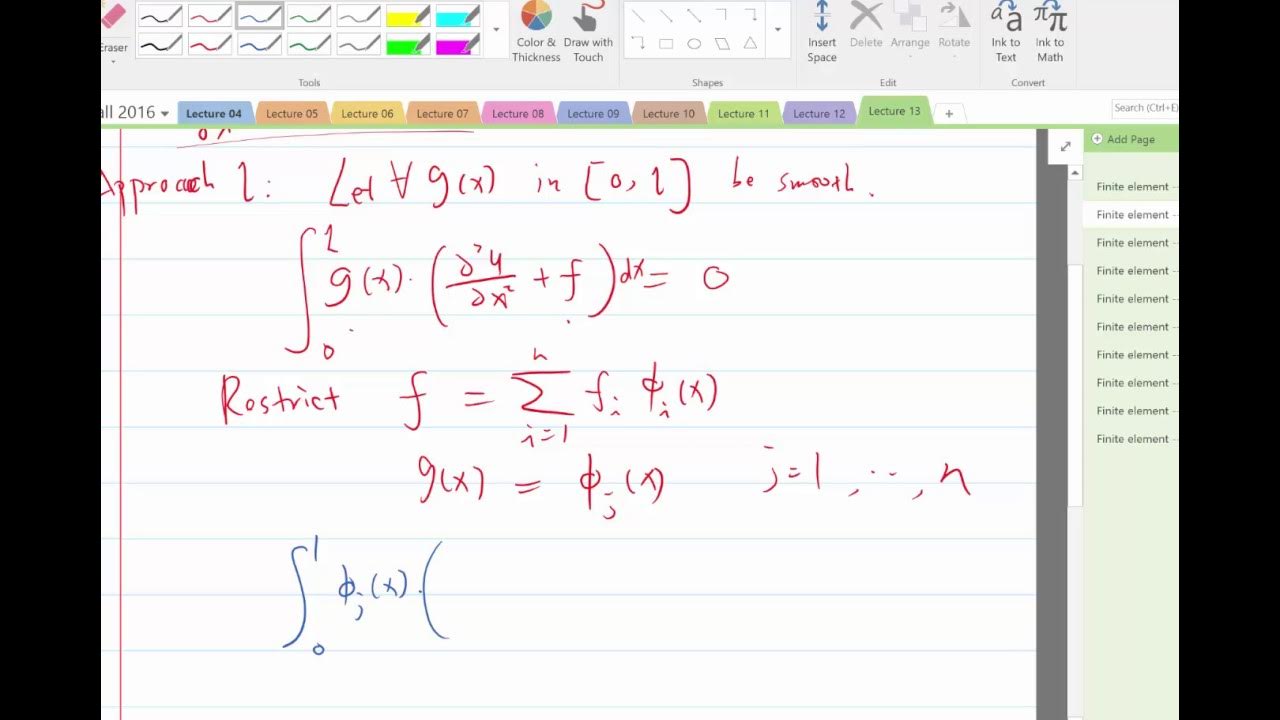 Eraser
Tools
Color & Thickness
Draw with Touch
Shapes
Insert Space
Delete
Arrange
Rotate
Edit
Ink to Text
Ink to Math
Convert
all 2016
Lecture 04
Lecture 05
Lecture 06
Lecture 07
Lecture 08
Lecture 09
Lecture 10
Lecture 11
Lecture 12
Lecture 13
+
Search (Ctrl+E)
Add Page
Finite element
Finite element
Finite element
Finite element
Finite element
Finite element
Finite element
Finite element
Finite element
Finite element
∂x
Approach 1: Let ∀ g(x) in [0, 1] be smooth.
∫₀¹ g(x)·(∂²u/∂x² + f)dx = 0
Restrict f = ∑ᵢ₌₁ⁿ fᵢ ϕᵢ(x)
g(x) = ϕⱼ(x) j=1, ..., n
∫₀¹ ϕⱼ(x)·(